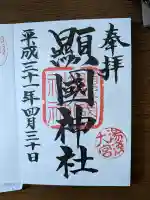 奉拝
顯國神社
平成三十一年四月三十日
湯浅
大宮